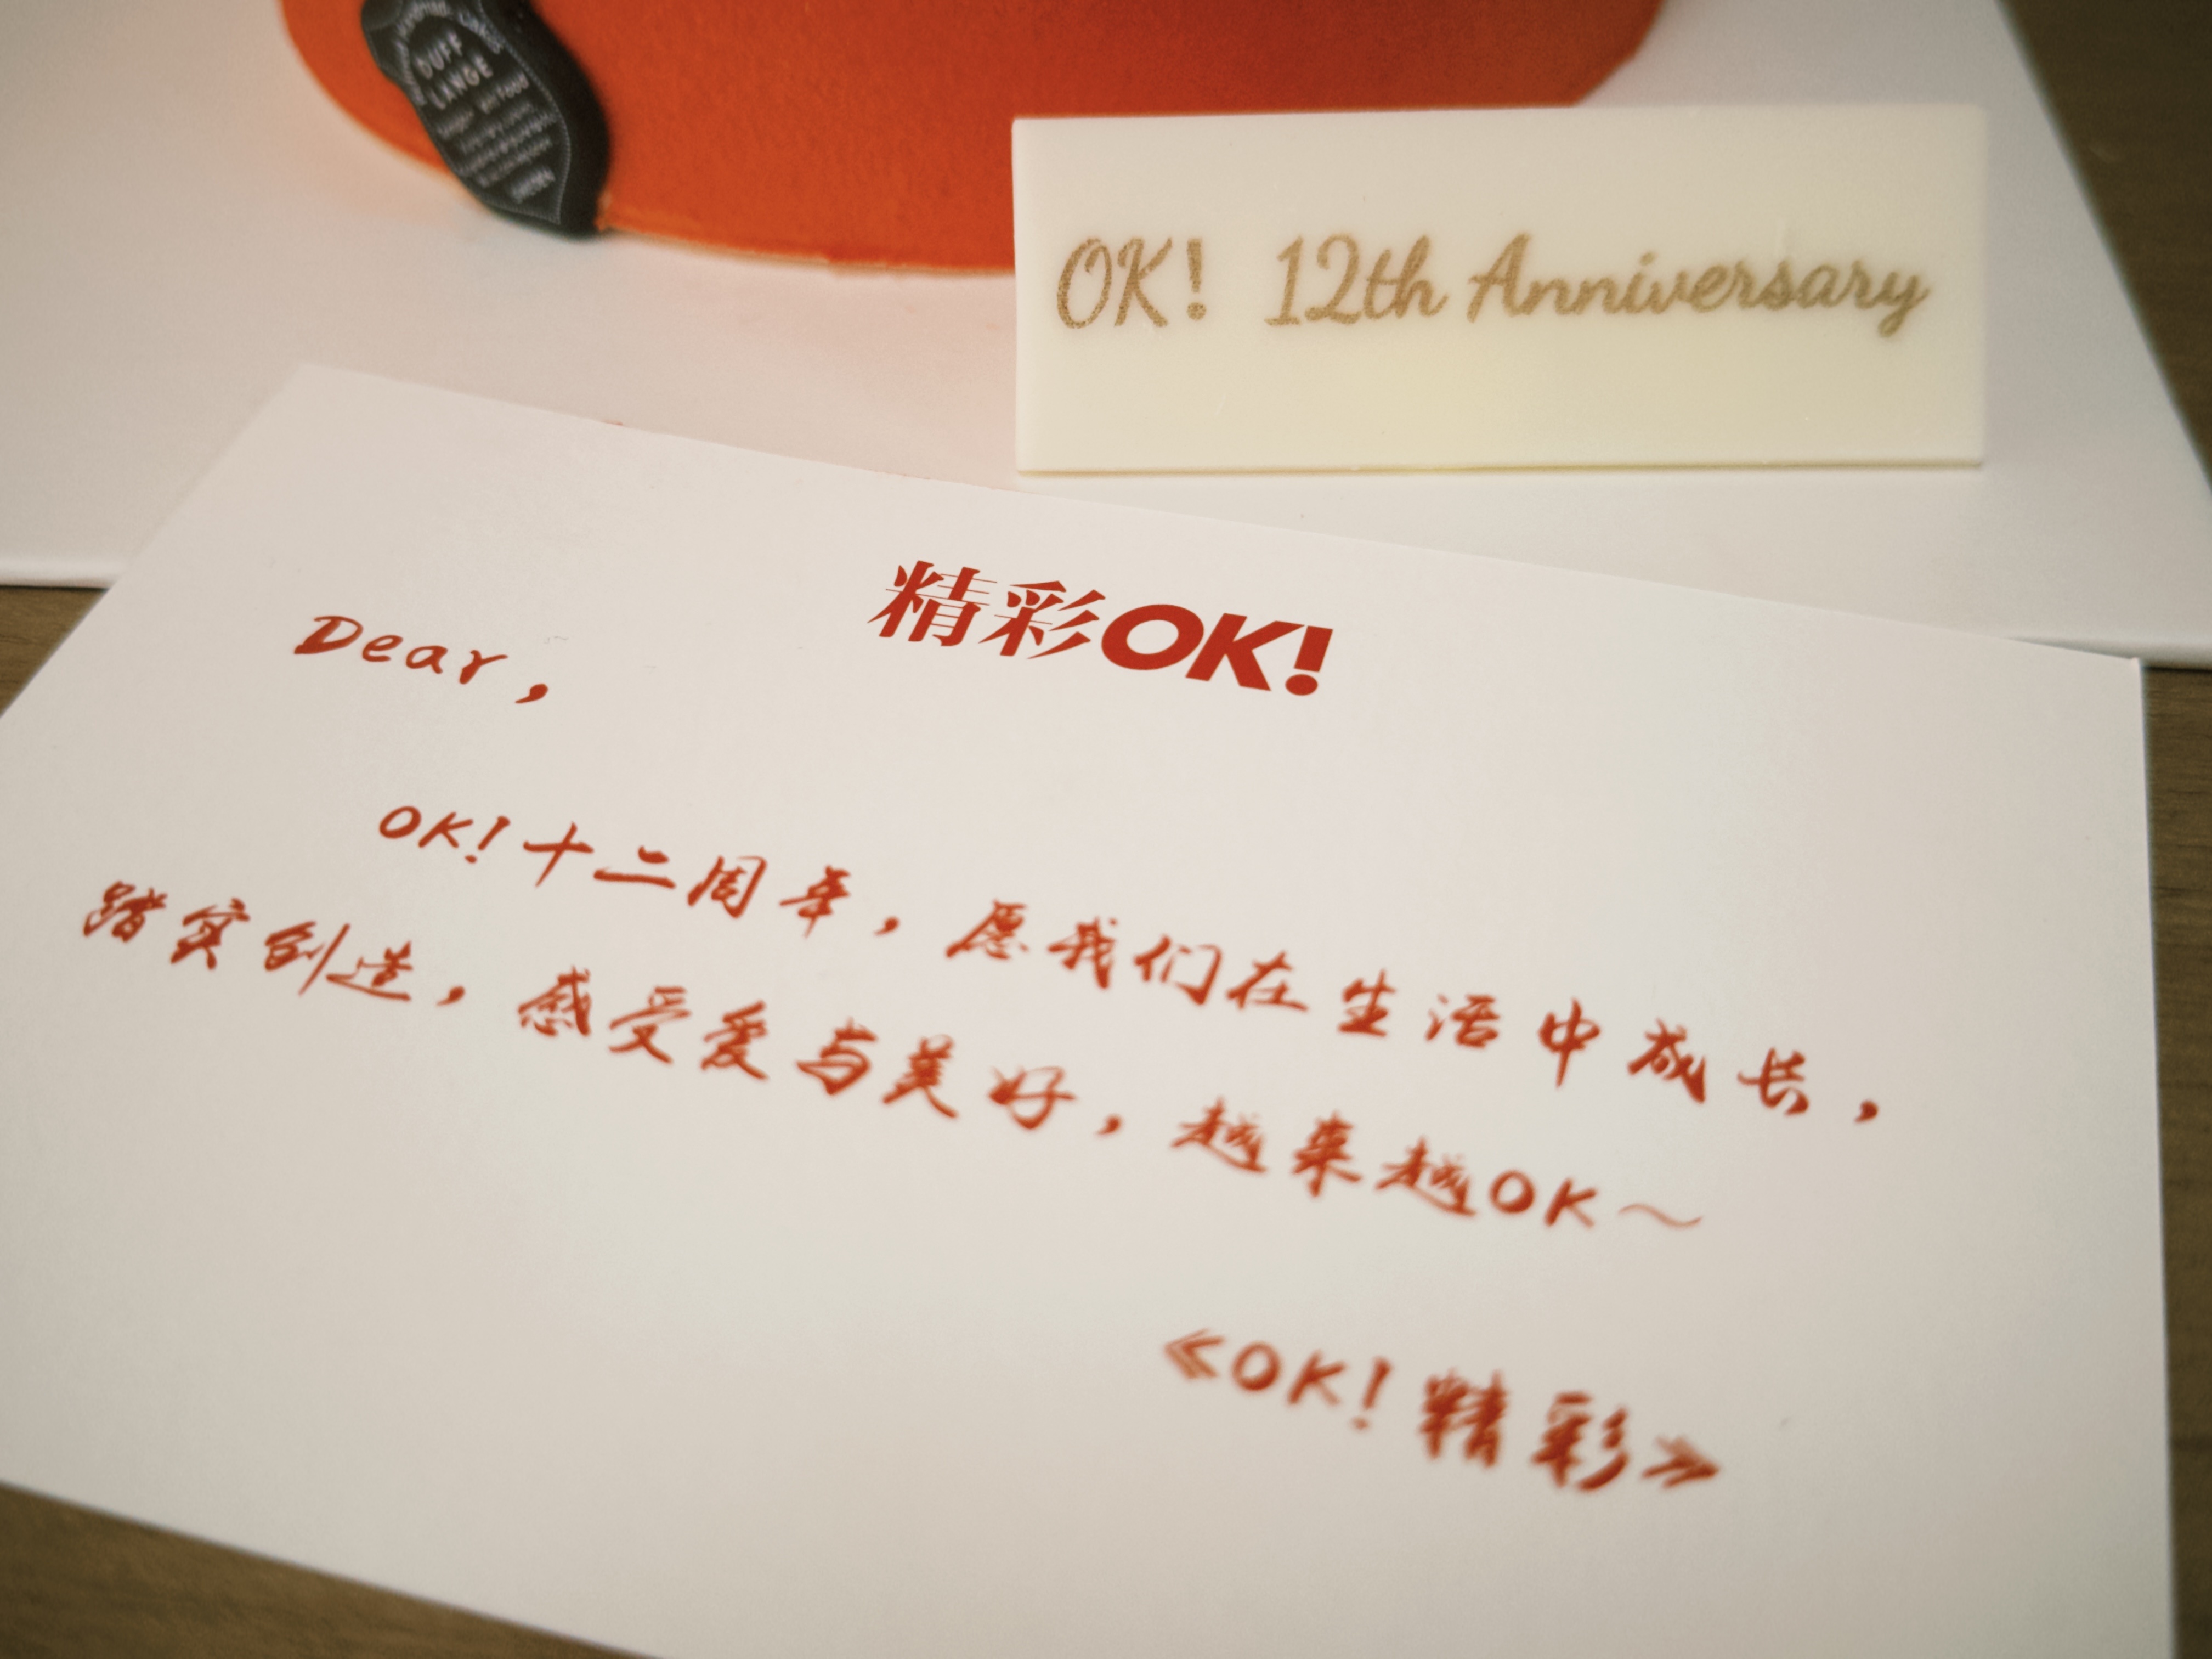 DUFF
LANGE
OK! 12th Anniversary
精彩OK!
Dear,
OK!十二周年，愿我们在生活中成长，
踏实创造，感受爱与美好，越来越OK～
《OK!精彩》